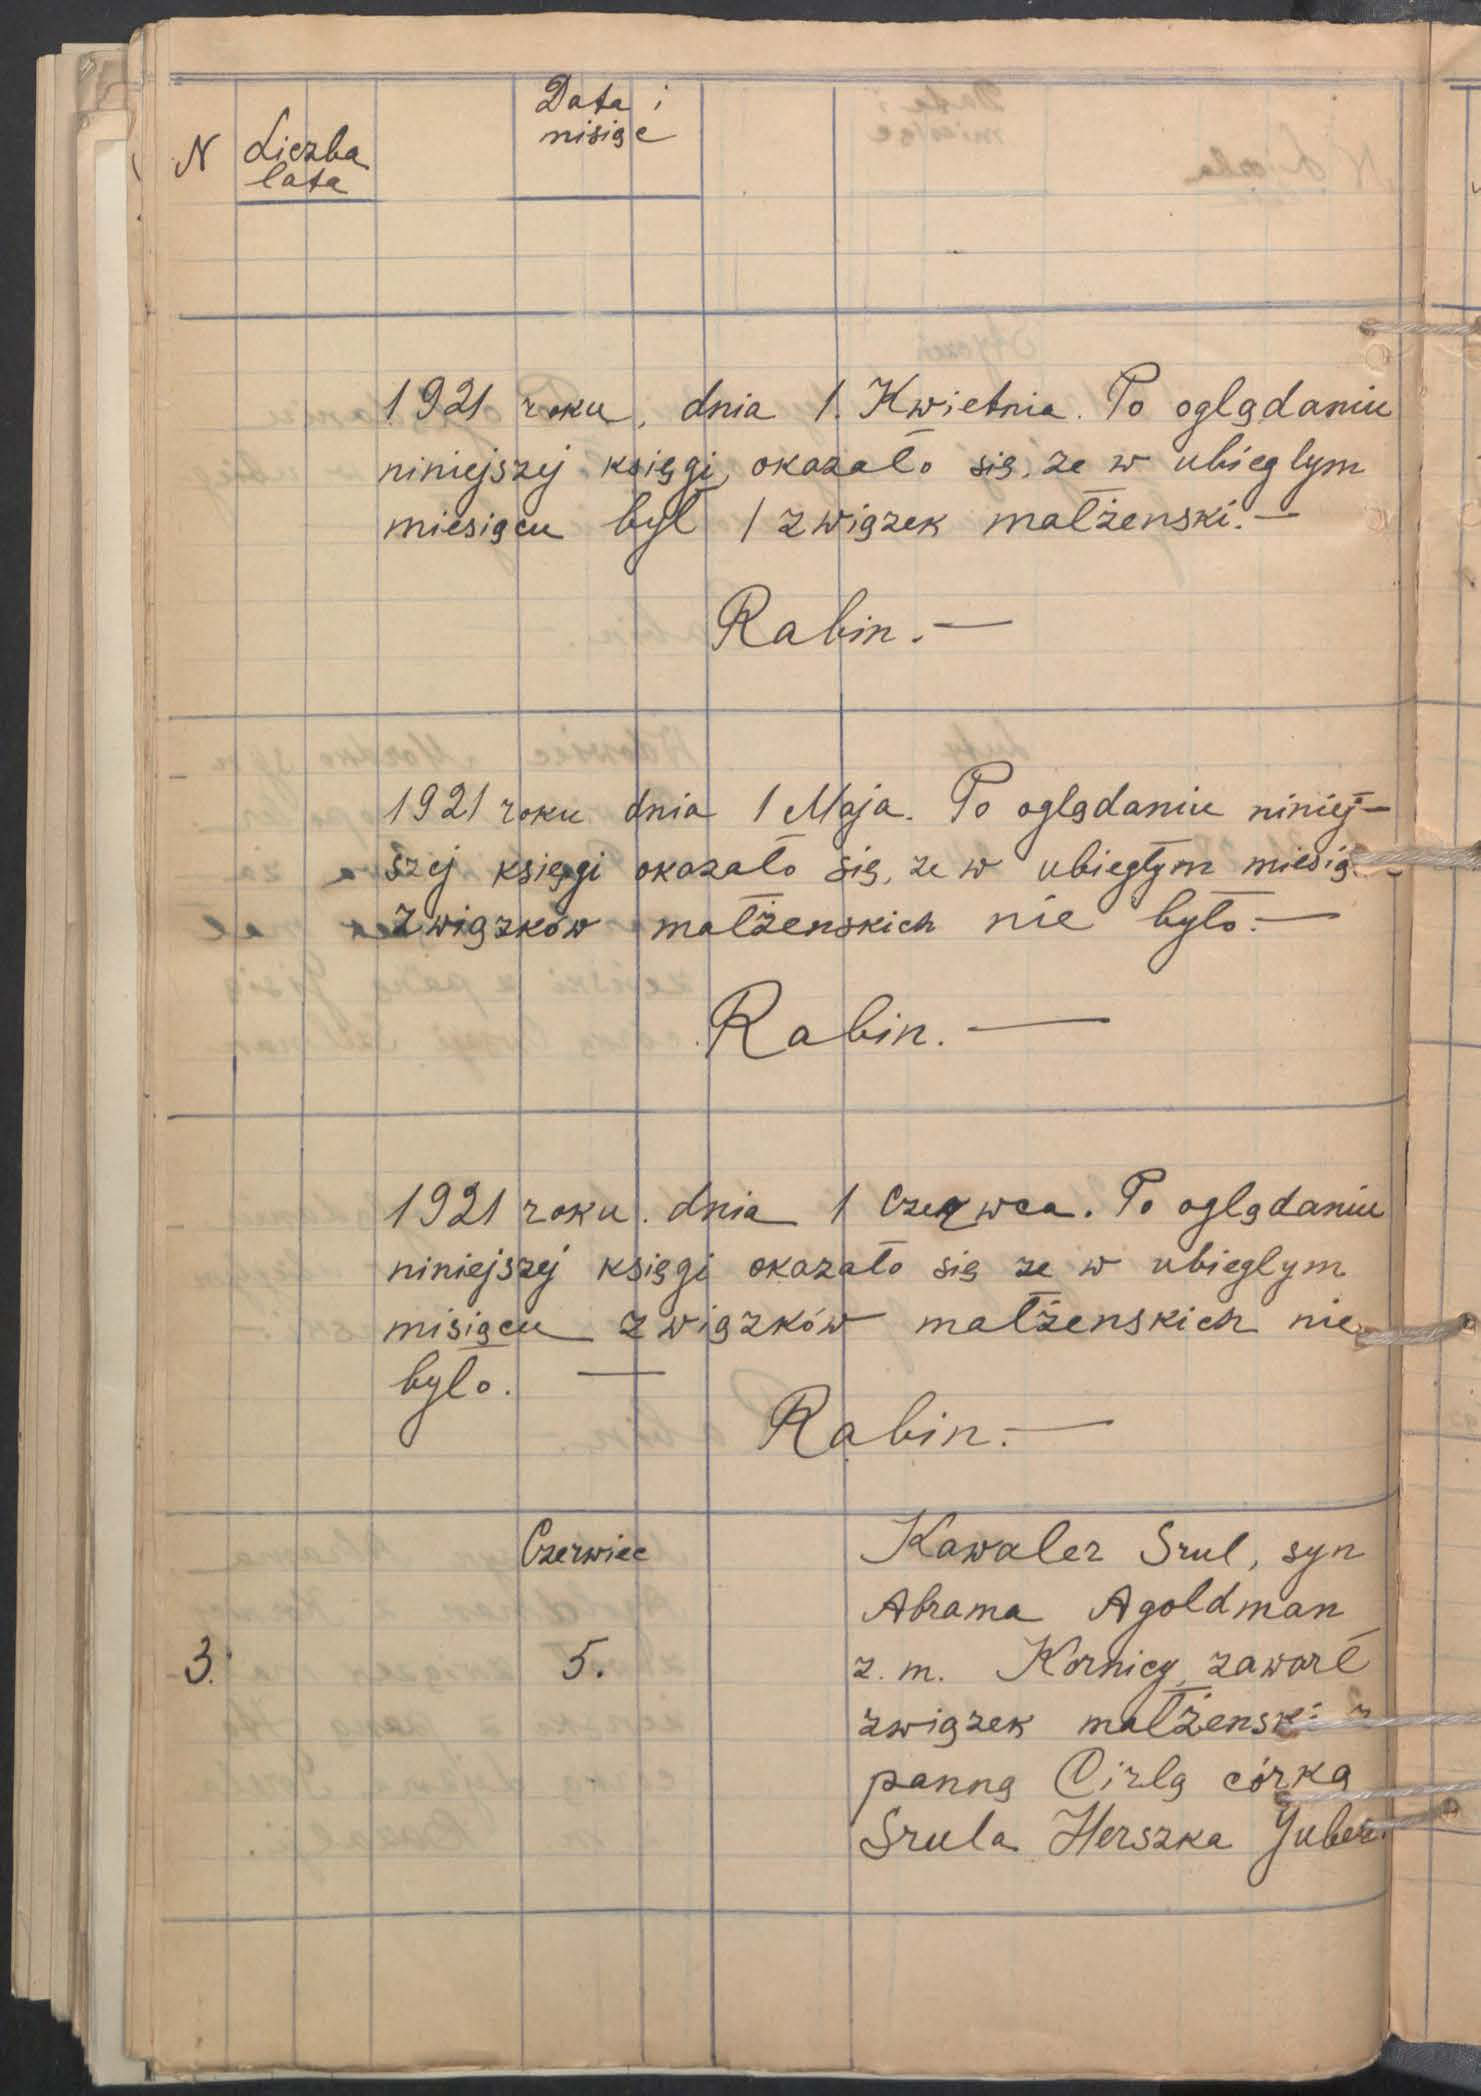 N
Liczba
lata
Data i
misiąc
1921 roku, dnia 1. Kwietnia. Po oglądaniu
niniejszej księgi, okazało się, ze w ubiegłym
miesiącu był 1 związek małżenski. —
Rabin. —
1921 roku dnia 1 Maja. Po oglądaniu niniej-
szej księgi okazało się, ze w ubiegłym miesią.
związków małżenskich nie było. —
Rabin. —
1921 roku. dnia 1 Czerwca. Po oglądaniu
niniejszej księgi okazało się ze w ubieglym
misiącu związków małżenskich nie
bylo. —
Rabin. —
Czerwiec
3.
5.
Kawaler Srul, syn
Abrama Agoldman
z. m. Kornicy, zawarł
związek małżenski z
panną Cirlą córką
Srula Herszka